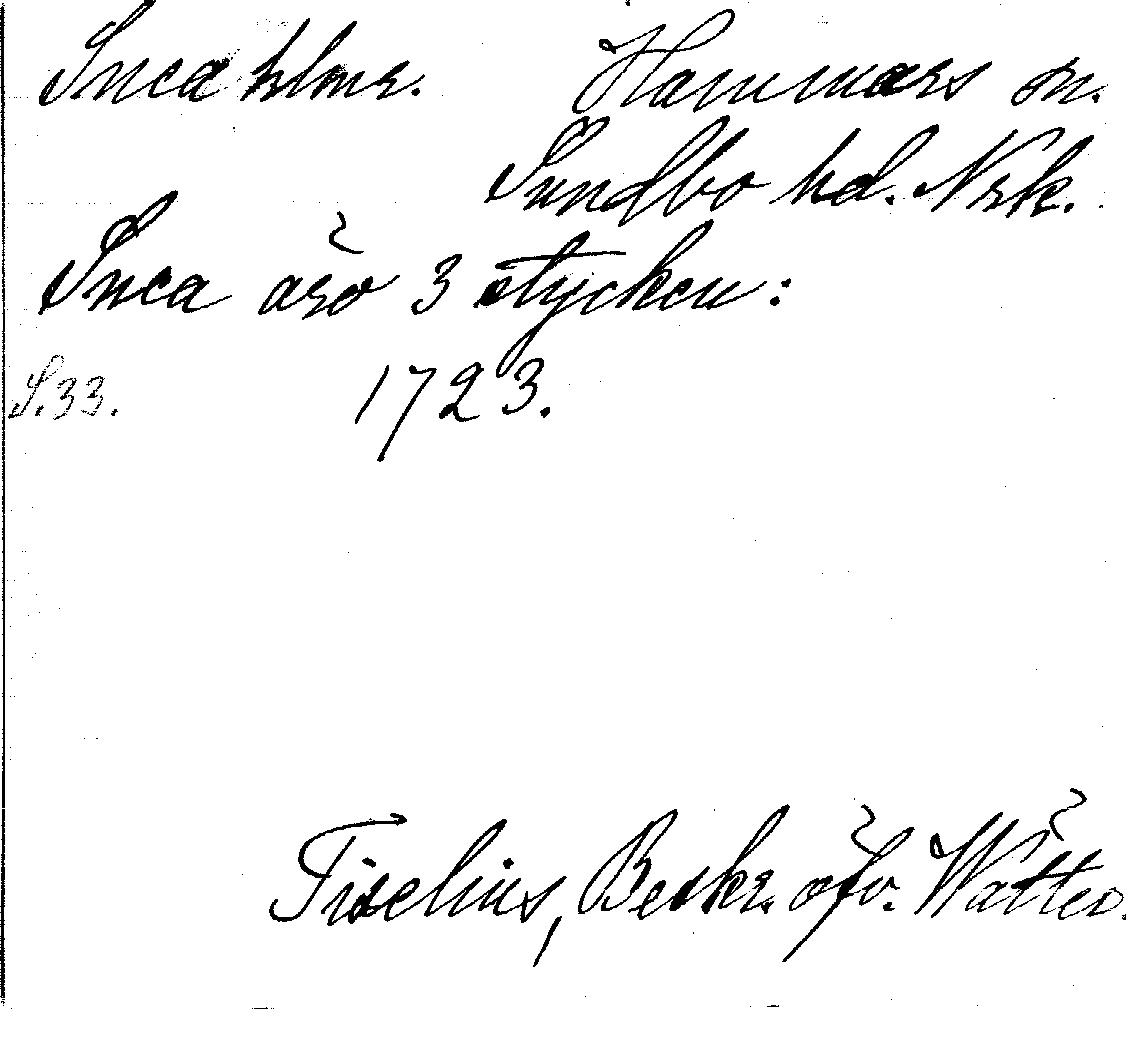 Snca hlmr. Hammars sn.
Sundbo hd. Nrk.
Snca äro 3 stycken:
S. 33. 1723.
Tiselius, Beskr. öfv. Wätter.